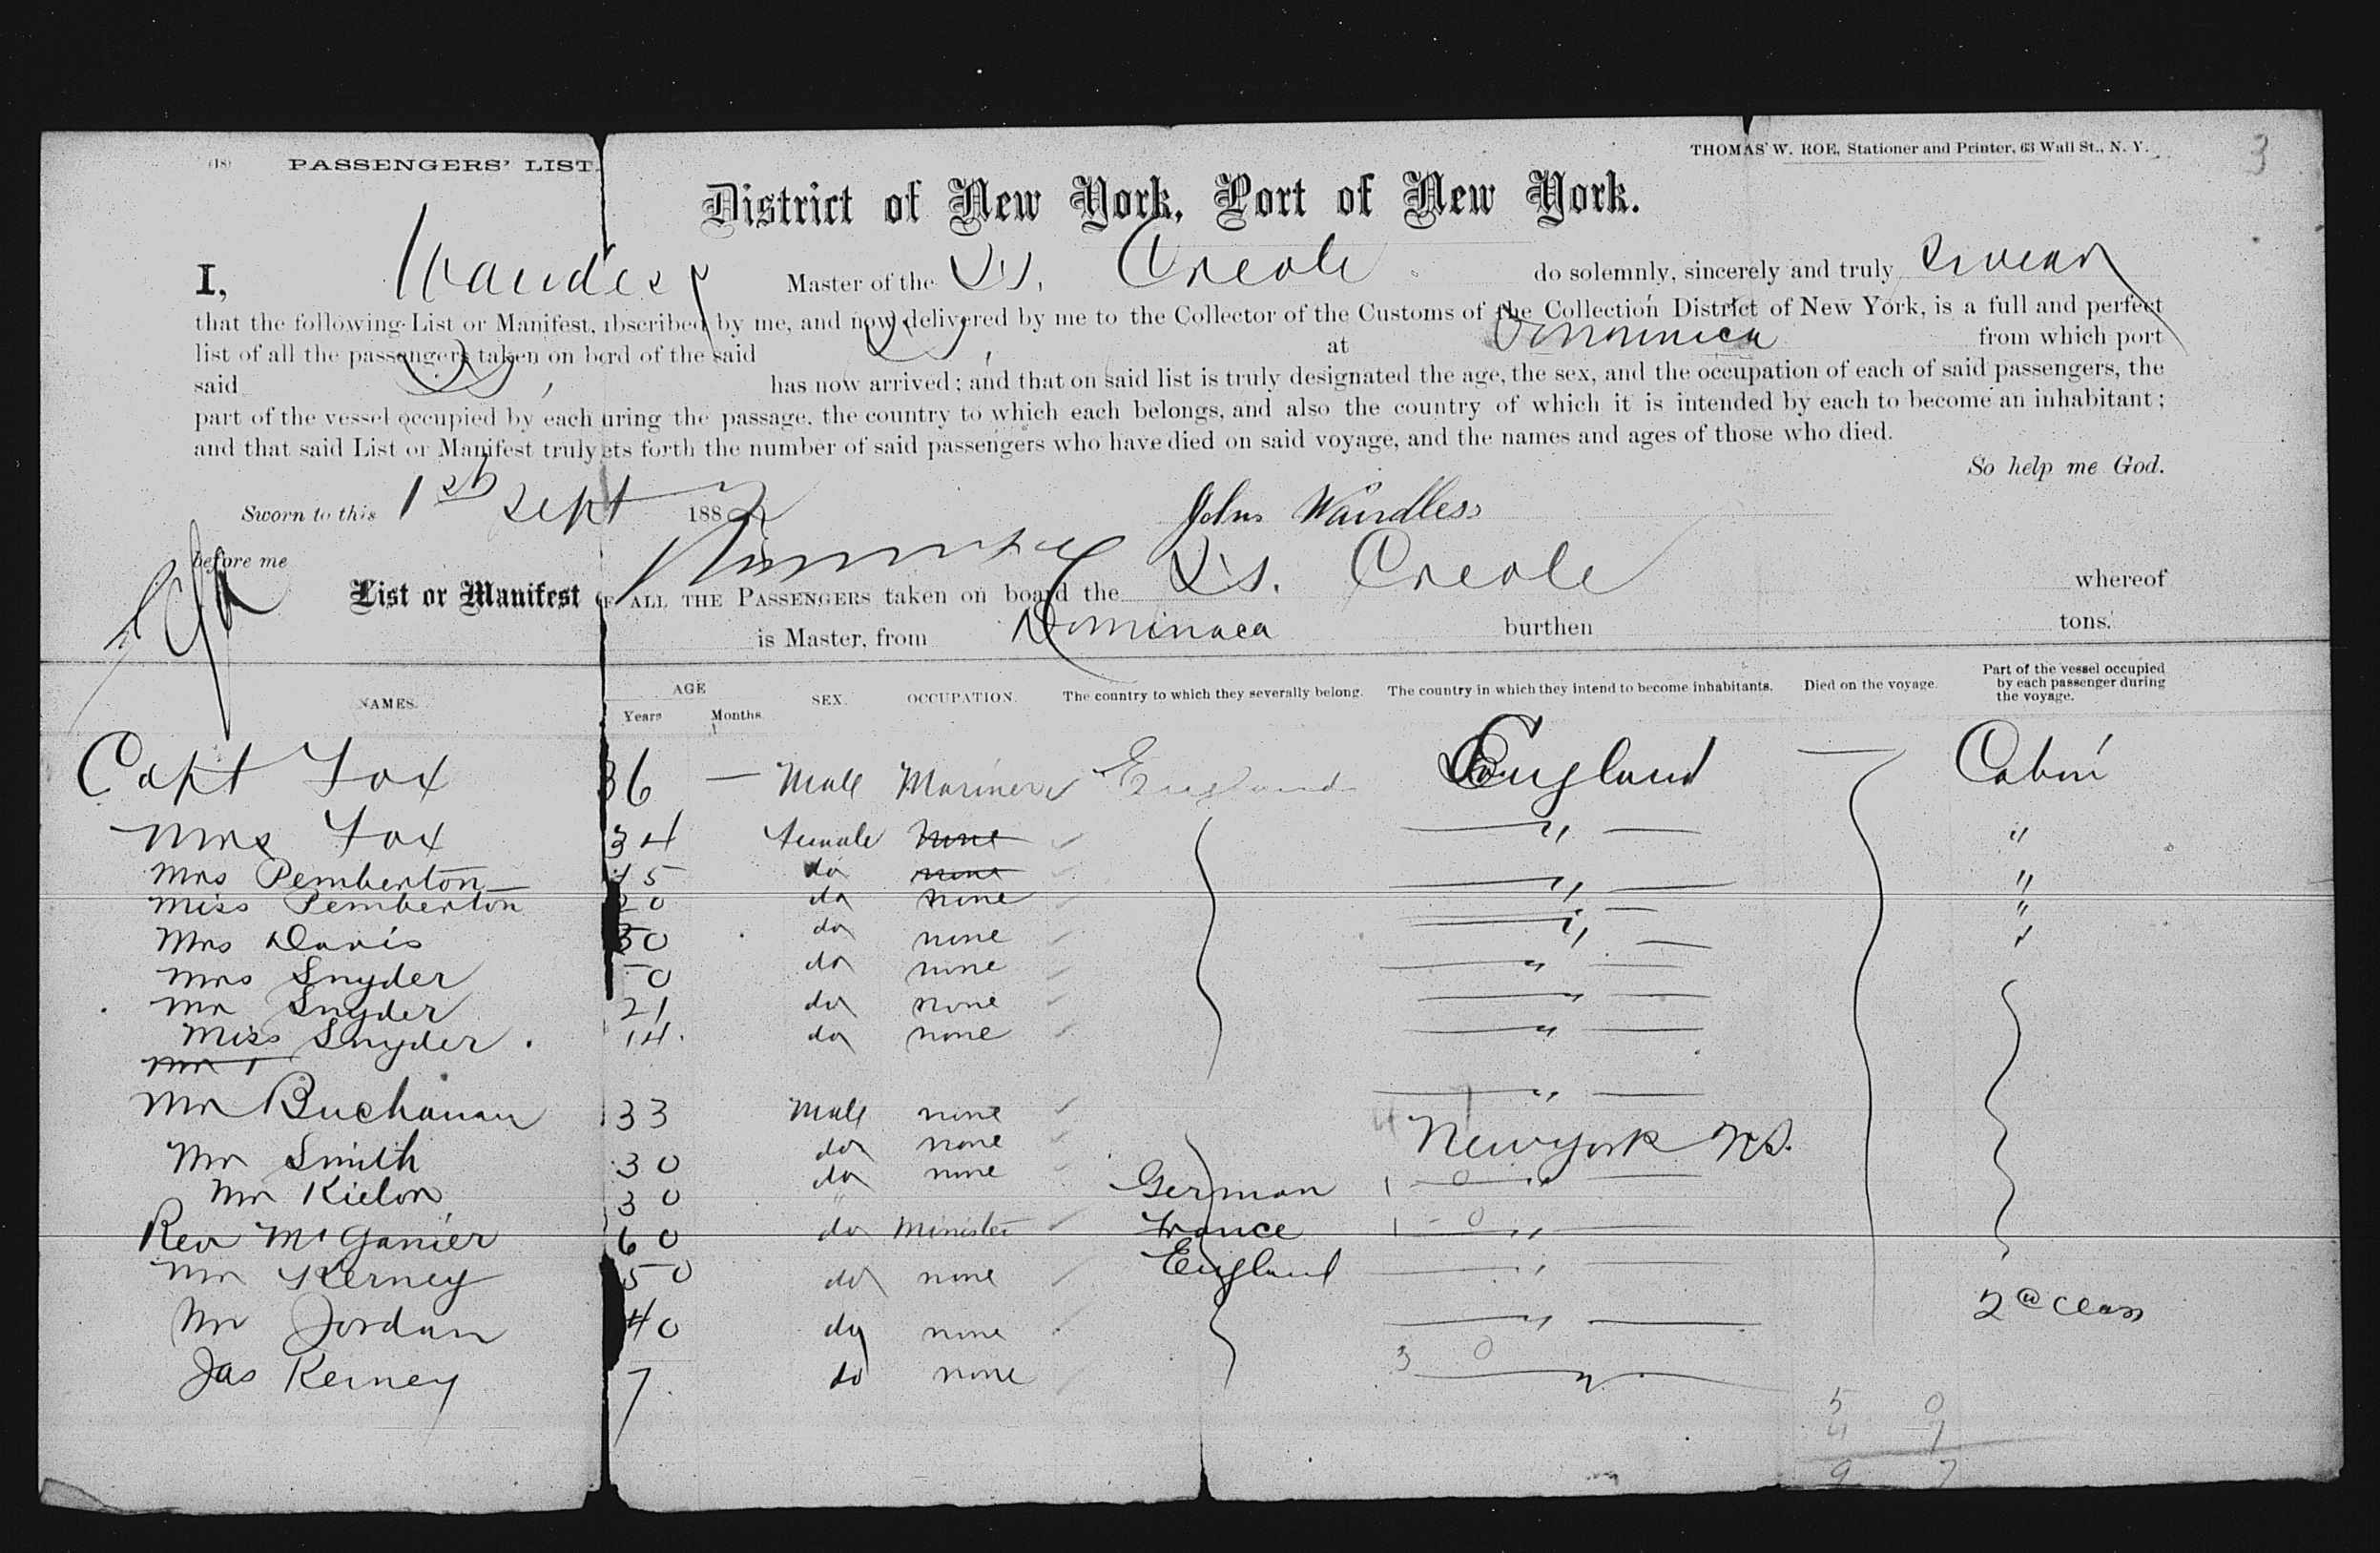 (18) PASSENGERS' LIST.
THOMAS W. ROE, Stationer and Printer, 63 Wall St., N. Y.
3
District of New York, Port of New York.
I, Wandless Master of the SS. Creole do solemnly, sincerely and truly swear
that the following List or Manifest, ubscribed by me, and now delivered by me to the Collector of the Customs of the Collection District of New York, is a full and perfect
list of all the passengers taken on bord of the said SS, at Dominica from which port
said SS, has now arrived; and that on said list is truly designated the age, the sex, and the occupation of each of said passengers, the
part of the vessel occupied by each uring the passage, the country to which each belongs, and also the country of which it is intended by each to become an inhabitant;
and that said List or Manifest truly ets forth the number of said passengers who have died on said voyage, and the names and ages of those who died.
So help me God.
Sworn to this 1st Sept 188 John Wandless
before me
List or Manifest OF ALL THE PASSENGERS taken on board the SS. Creole whereof
is Master, from Dominaca burthen tons.
NAMES. AGE Years Months SEX. OCCUPATION. The country to which they severally belong. The country in which they intend to become inhabitants. Died on the voyage. Part of the vessel occupied by each passenger during the voyage.
Capt Fox 36 — Male Mariner England England — Cabin
Mrs Fox 34 female none " "
Mrs Pemberton 45 do none " "
Miss Pemberton 20 do none " "
Mrs Davis 50 do none " "
Mrs Snyder 50 do none "
Mr Snyder 21 do none "
Miss Snyder 14 do none "
Mr
Mr Buchanan 33 Male none "
Mr Smith 30 do none New York
Mr Kielon 30 do none German 1 0 "
Rev Mr Ganier 60 do Minister France 1 - 0 "
Mr Kerney 50 do none England "
Mr Jordan 40 do none " 2 Class
Jas Kerney 7 do none 3 0 "
5 0
4 7
9 7